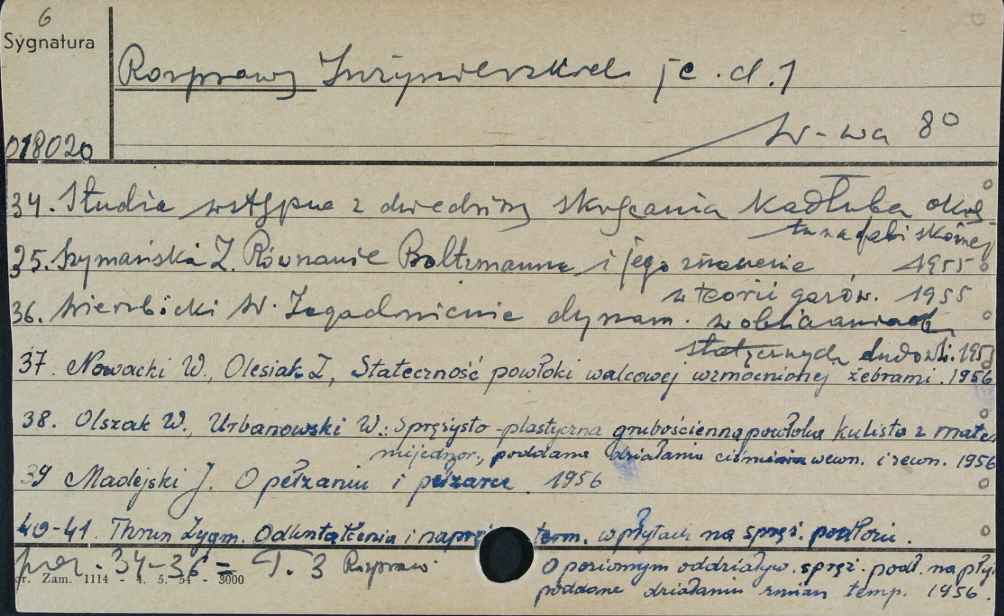 6
Sygnatura
Rozprawy Inżynierskie [c.d.]
W-wa 80
018020
34. Studia wstępne z dziedziny skręcania kadłuba okrę
tu na fali skośnej
1955
35. Szymański Z. Równanie Boltzmanna i jego znaczenie
w teorii gazów. 1955
36. Wierzbicki W. Zagadnienie dynam. w obliczeniach
statycznych budowli. 195
37. Nowacki W., Olesiak Z., Stateczność powłoki walcowej wzmocnionej żebrami. 1956
38. Olszak W., Urbanowski W.: Sprężysto-plastyczna grubościenna powłoka kulista z mater.
niejednor., poddana działaniu ciśnienia wewn. i zewn. 1956
39 Madejski J. O pełzaniu i pełzarce. 1956
40-41. Thrun Zygm. Odkształcenia i napręż term. w płytach na spręż. podłożu.
por. 34-36 = T. 3 Rozpraw.
O poziomym oddziaływ. spręż. podł. na płyt
poddane działaniu zmian temp. 1956.
dr. Zam. 1114 - 4. 5. 54 - 3000